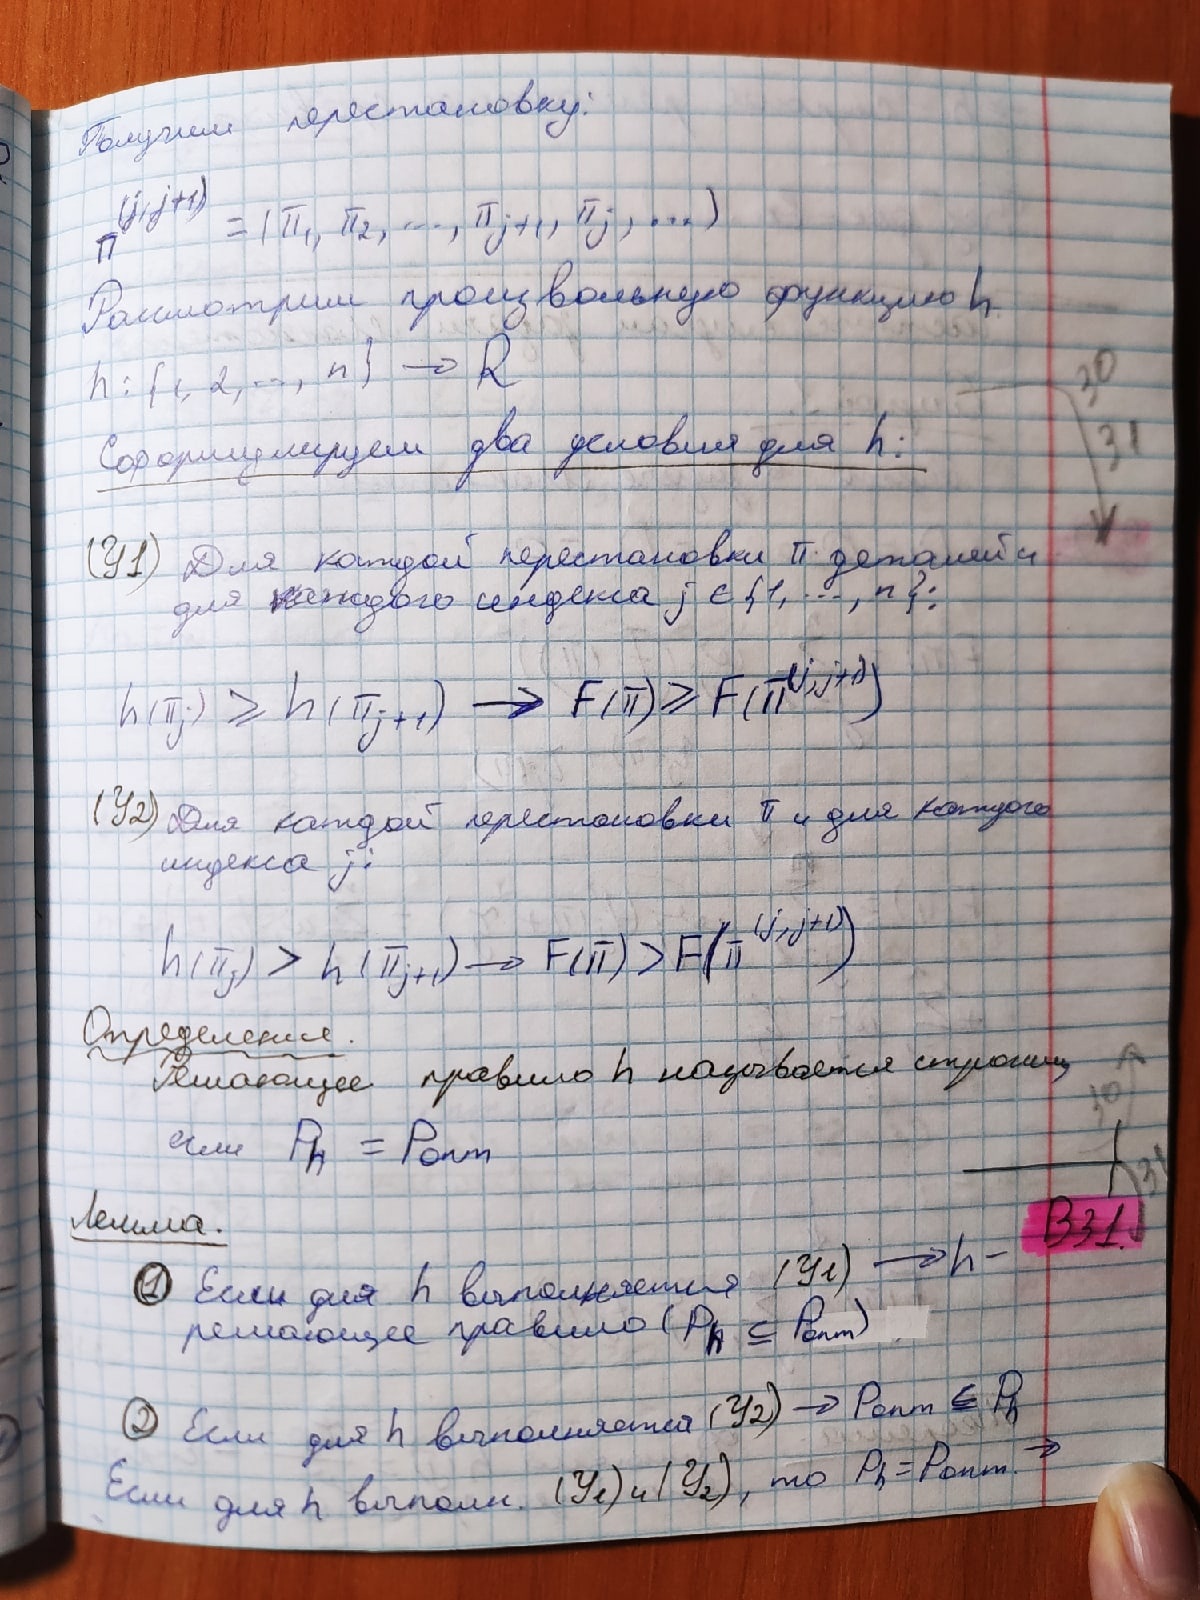 Получим перестановку:
π^(j,j+1) = (π₁, π₂, ..., π_{j+1}, π_j, ...)
Рассмотрим произвольную функцию h
h: {1, 2, ..., n} → R
Сформулируем два условия для h:
30
31
(У1) Для каждой перестановки π деталей и
для каждого индекса j ∈ {1, ..., n}:
h(π_j) ≥ h(π_{j+1}) → F(π) ≥ F(π^(j,j+1))
(У2) Для каждой перестановки π и для каждого
индекса j:
h(π_j) > h(π_{j+1}) → F(π) > F(π^(j,j+1))
Определение.
Решающее правило h называется строгим
если P_h = P_опт
30
31
Лемма.
В31.
① Если для h выполняется (У1) → h –
решающее правило (P_h ⊆ P_опт)
② Если для h выполняется (У2) → P_опт ⊆ P_h
Если для h выполн. (У1) и (У2), то P_h = P_опт. →